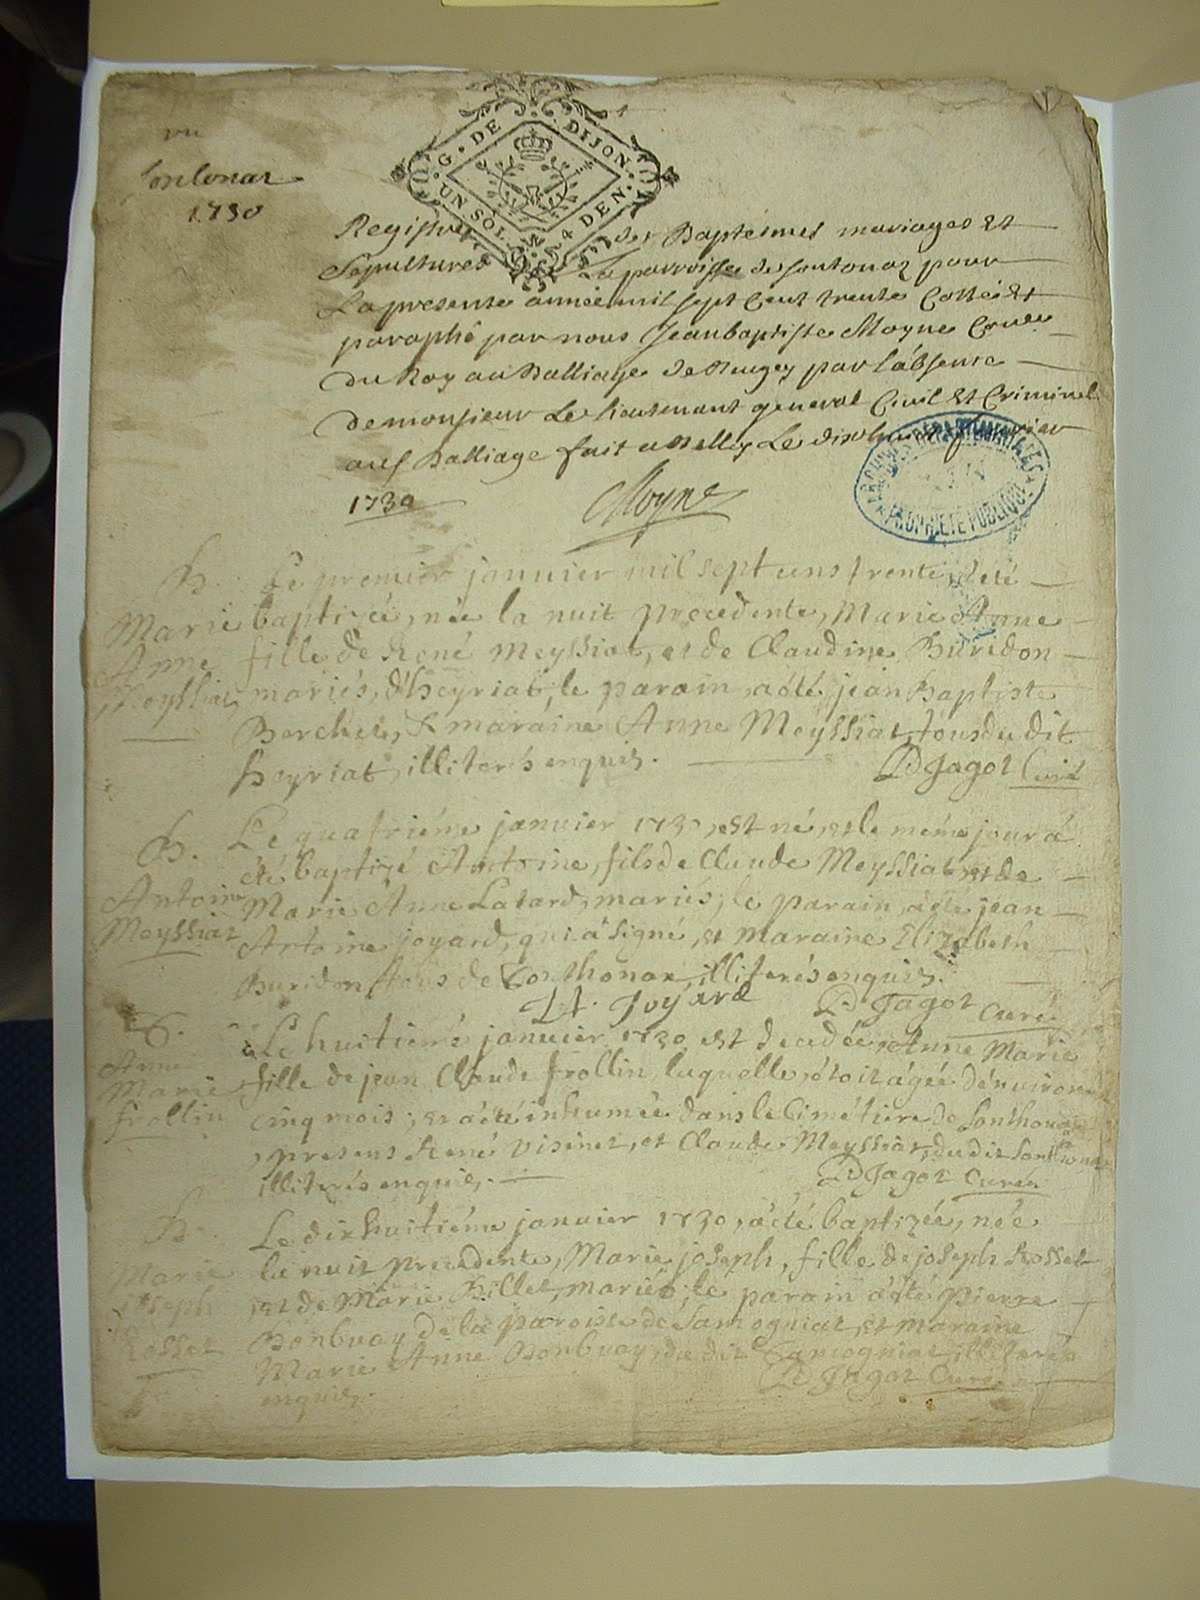 vu
Sontonas
1730
G. DE DIJON.
UN SOL. 4 DEN.
Registre des Baptesmes mariages Et
Sepultures La parroisse de Sontonaz pour
La presente année mil sept Cent trente Cotté Et
paraphé par nous Jeanbaptiste Moyne Conser
Du Roy au Balliage de Bugey par l'absence
de monsieur Le lieutenant general Civil Et Criminel
aud Balliage fait a Belley Le dixhuict Janvier
1730 Moyne
ARCHIVES DEPARTEMENTALES
AIN
PROPRIETE PUBLIQUE
B. Le premier janvier mil sept cens trente, a eté
Marie baptizée, née la nuit precedente, Marie Anne
Anne fille de René Meyssiat, et de Claudine Buredon
Meyssiat mariés, d'heyriat, le parain a été jean Baptiste
Berchet, & maraine Anne Meyssiat, tous du dit
heyriat, illiterés enquis. D Jagot Curé
B. Le quatriéme janvier 1730, est né, et le méme jour á
été baptizé Antoine, fils de Claude Meyssiat, et de
Antoine Marie Anne Latard, mariés; le parain, a été jean
Meyssiat Antoine joyard, qui a signé, et maraine Elizabeth
Buridon, tous de Sonthonax, illiterés enquis.
A. Joyard D Jagot Curé
S. Le huitiéme janvier 1730 est decedée Anne Marie
Anne Marie fille de jean Claude frollin, laquelle, étoit agée d'environ
frollin cinq mois; et a été inhumée dans le Cimétiére de Sonthonax
, presens René Visinet, et Claude Meyssiat, du dit Sonthonax
illiterés enquis. D Jagot Curé
B. Le dixhuitiéme janvier 1730, a été baptizée, née
Marie la nuit precedente, Marie joseph, fille de joseph Rosset
joseph et de Marie Billet, mariés; le parain a été pierre
Rosset Bonbuay de la paroisse de Samogniat, et maraine
Marie Anne Bonbuay, du dit Samogniat, illiterés
enquis. D Jagot Curé